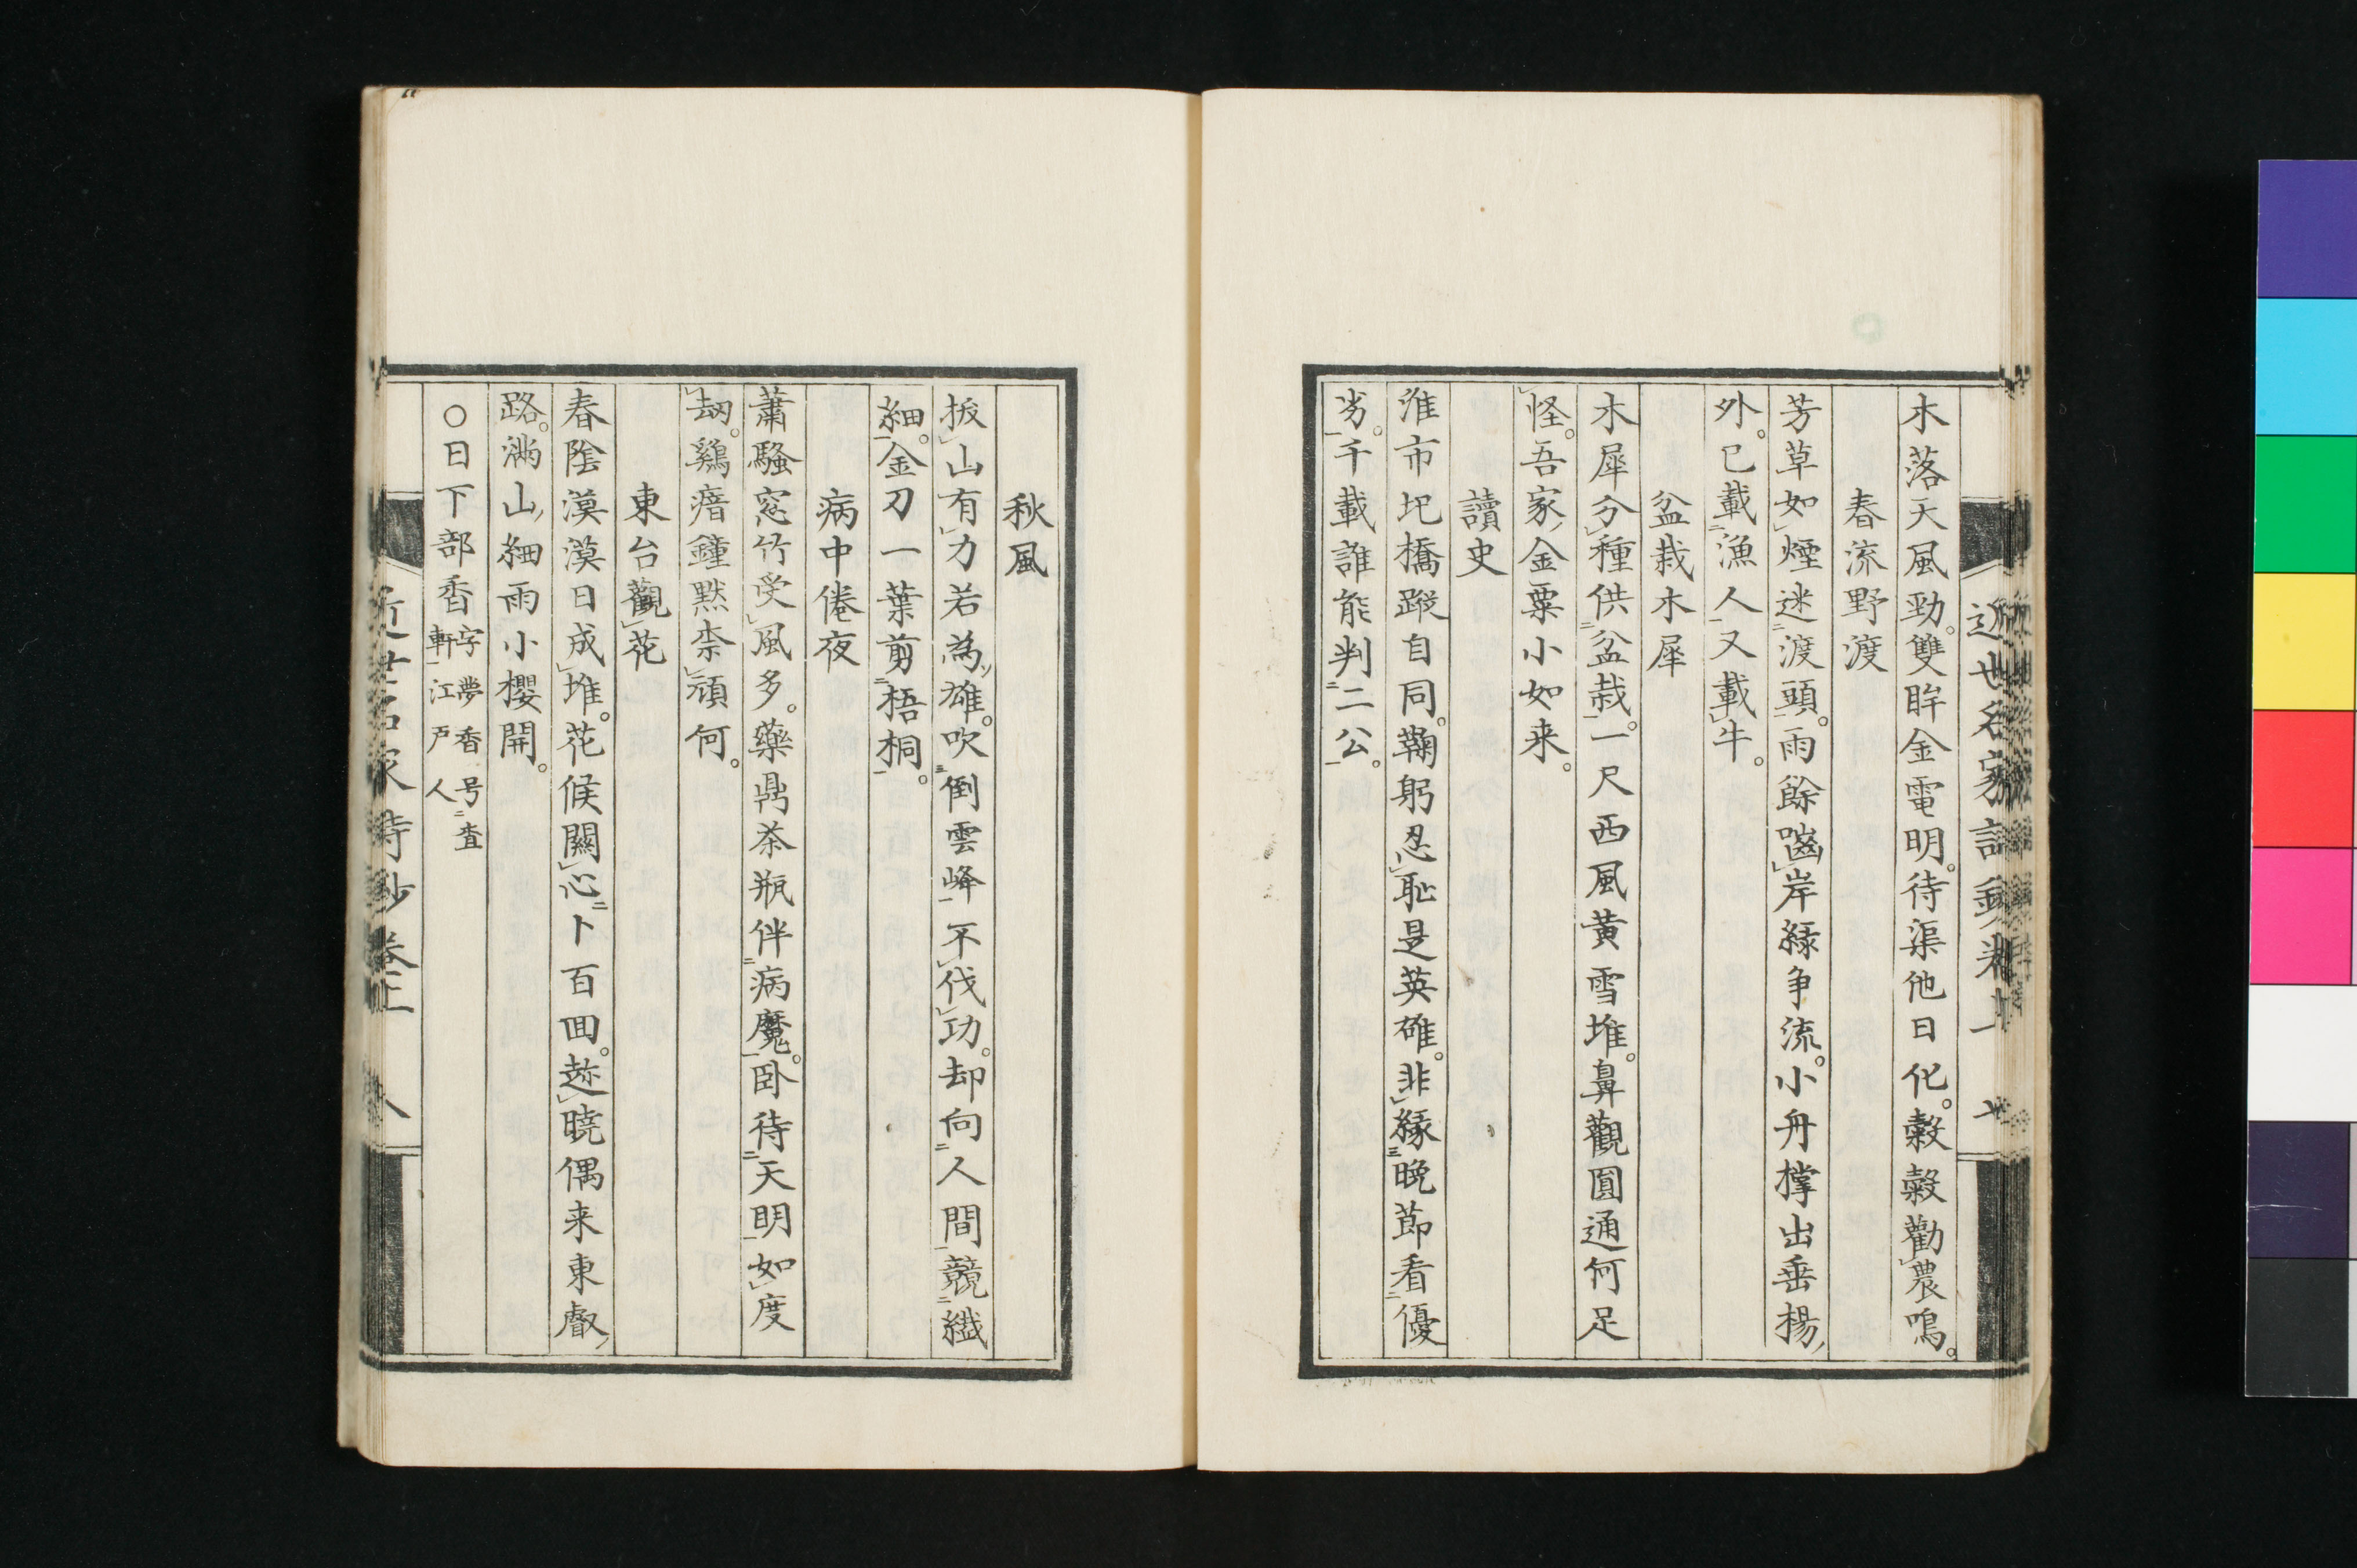 木落天風勁。雙眸金電明。待渠他日化。穀穀勸農鳴。
春流野渡
芳草如煙迷渡頭。雨餘嚙岸緑争流。小舟撑出垂楊
外。已載漁人又載牛。
盆栽木犀
木犀分種供盆栽。一尺西風黄雪堆。鼻觀圓通何足
怪。吾家金粟小如来。
讀史
淮市圯橋蹤自同。鞠躬忍恥是英雄。非縁晩節看優
劣。千載誰能判二公。
秋風
拔山有力若為雄。吹倒雲峰不伐功。却向人間競繊
細。金刀一葉剪梧桐。
病中倦夜
蕭騒窓竹受風多。藥鼎茶瓶伴病魔。卧待天明如度
劫。鷄瘖鐘黙柰頑何。
東台觀花
春陰漠漠日成堆。花候關心卜百回。趂曉偶来東叡
路。満山細雨小櫻開。
○日下部香字夢香号査
軒江戸人
近世名家詩鈔卷上 八